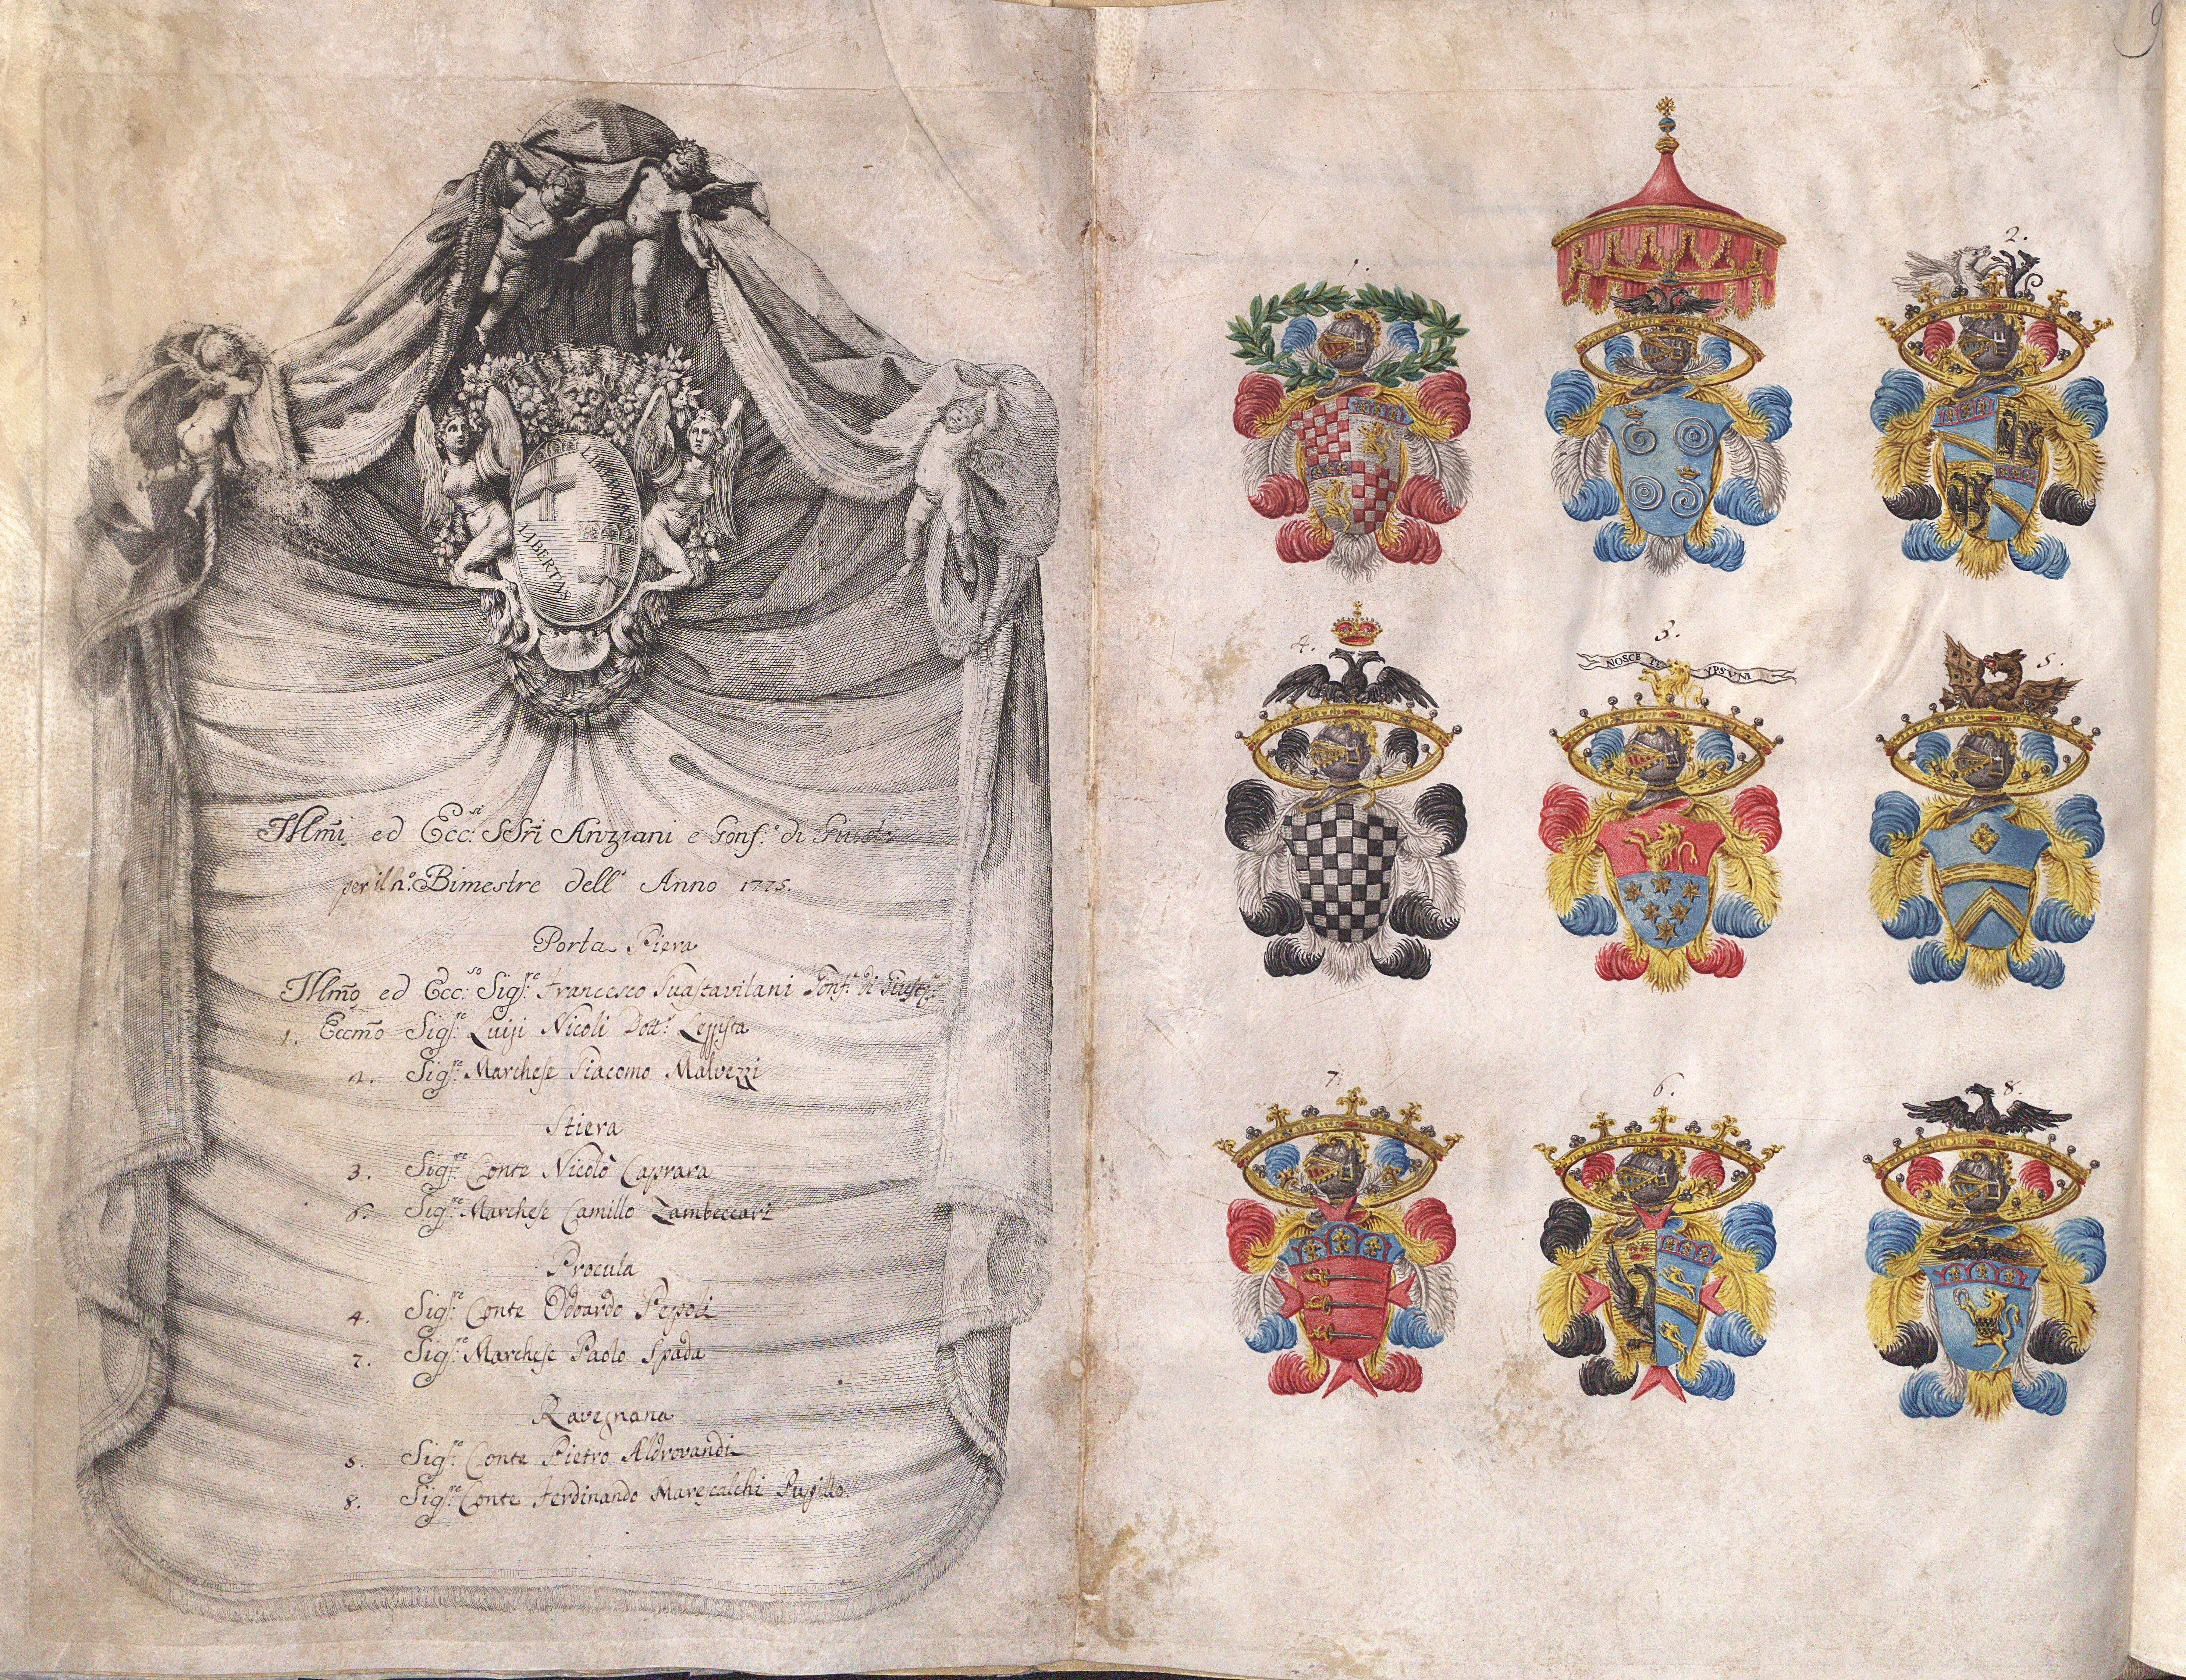 LIBERTAS
LIBERTAS
Illmi ed Ecc:si SSri Anziani e Gonf.e di Giustizia
per il 2.o Bimestre dell' Anno 1775.
Porta Piera
Illmo ed Ecc:so Sigr.e Francesco Guastavilani Gonf.e di Giustiz.a
1. Eccmo Sigr.e Luigi Nicoli Dott.e Leggista
2. Sigr.e Marchese Giacomo Malvezzi
Stiera
3. Sigr.e Conte Nicolò Caprara
6. Sigr.e Marchese Camillo Zambeccari
Procula
4. Sigr.e Conte Odoardo Pepoli
7. Sigr.e Marchese Paolo Spada
Ravegnana
5. Sigr.e Conte Pietro Aldrovandi
8. Sigr.e Conte Ferdinando Marescalchi Pupillo.
9
1.
2.
4.
3.
NOSCE TE YPSVM
5.
7.
6.
8.